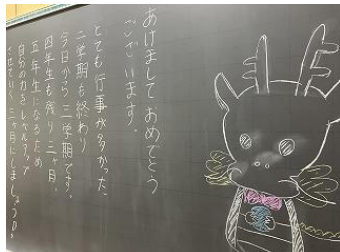 あけましておめでとう
ございます。
とても行事が多かった、
二学期も終わり
今日から三学期です。
四年生も残り三ヶ月。
五年生になるため
自分の力をレベルアップ
させていく三ヶ月にしましょう!